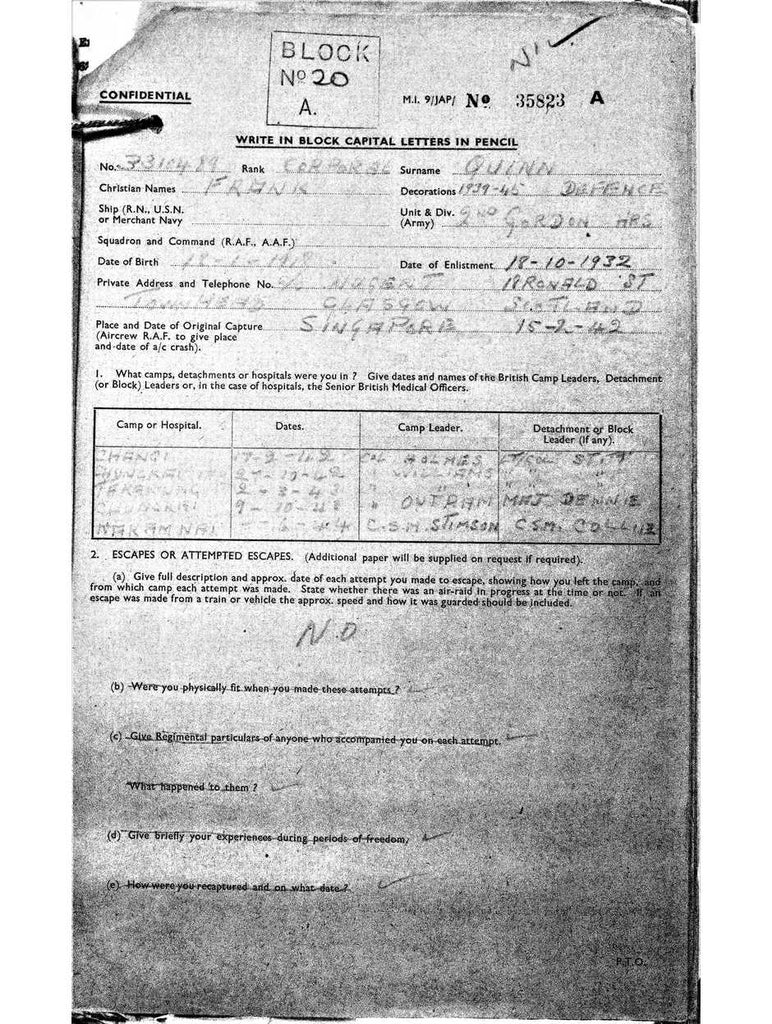 BLOCK
Nº 20
A.
NIL
CONFIDENTIAL
M.I. 9/JAP/ Nº 35823 A
WRITE IN BLOCK CAPITAL LETTERS IN PENCIL
No. 3310489 Rank CORPORAL Surname QUINN
Christian Names FRANK Decorations 1939-45 DEFENCE
Ship (R.N., U.S.N. or Merchant Navy
Unit & Div. (Army) 2ND GORDON HRS
Squadron and Command (R.A.F., A.A.F.)
Date of Birth 18-1-1918 Date of Enlistment 18-10-1932
Private Address and Telephone No. C/o NUGENT 18 RONALD ST
TOWNHEAD GLASGOW SCOTLAND
Place and Date of Original Capture SINGAPORE 15-2-42
(Aircrew R.A.F. to give place
and date of a/c crash).
1. What camps, detachments or hospitals were you in ? Give dates and names of the British Camp Leaders, Detachment
(or Block) Leaders or, in the case of hospitals, the Senior British Medical Officers.
Camp or Hospital. Dates. Camp Leader. Detachment or Block Leader (if any).
CHANGI 17-2-42 COL HOLMES LT/COL STITT
CHUNGKAI 27-10-42 " WILLIAMS " "
TAKANUNG 2-3-43 " " " "
CHUNGKAI 9-10-43 " OUTRAM MAJ DENNIE
NAKAMNAI 6-44 C.S.M. STIMSON C.S.M. COLLIE
2. ESCAPES OR ATTEMPTED ESCAPES. (Additional paper will be supplied on request if required).
(a) Give full description and approx. date of each attempt you made to escape, showing how you left the camp, and
from which camp each attempt was made. State whether there was an air-raid in progress at the time or not. If an
escape was made from a train or vehicle the approx. speed and how it was guarded should be included.
N.O
(b) Were you physically fit when you made these attempts ?
(c) Give Regimental particulars of anyone who accompanied you on each attempt.
What happened to them ?
(d) Give briefly your experiences during periods of freedom.
(e) How were you recaptured and on what date ?
P.T.O.